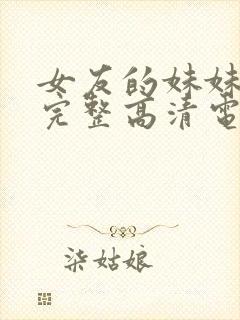 女友的妹妹
完整高清電
柒姑娘